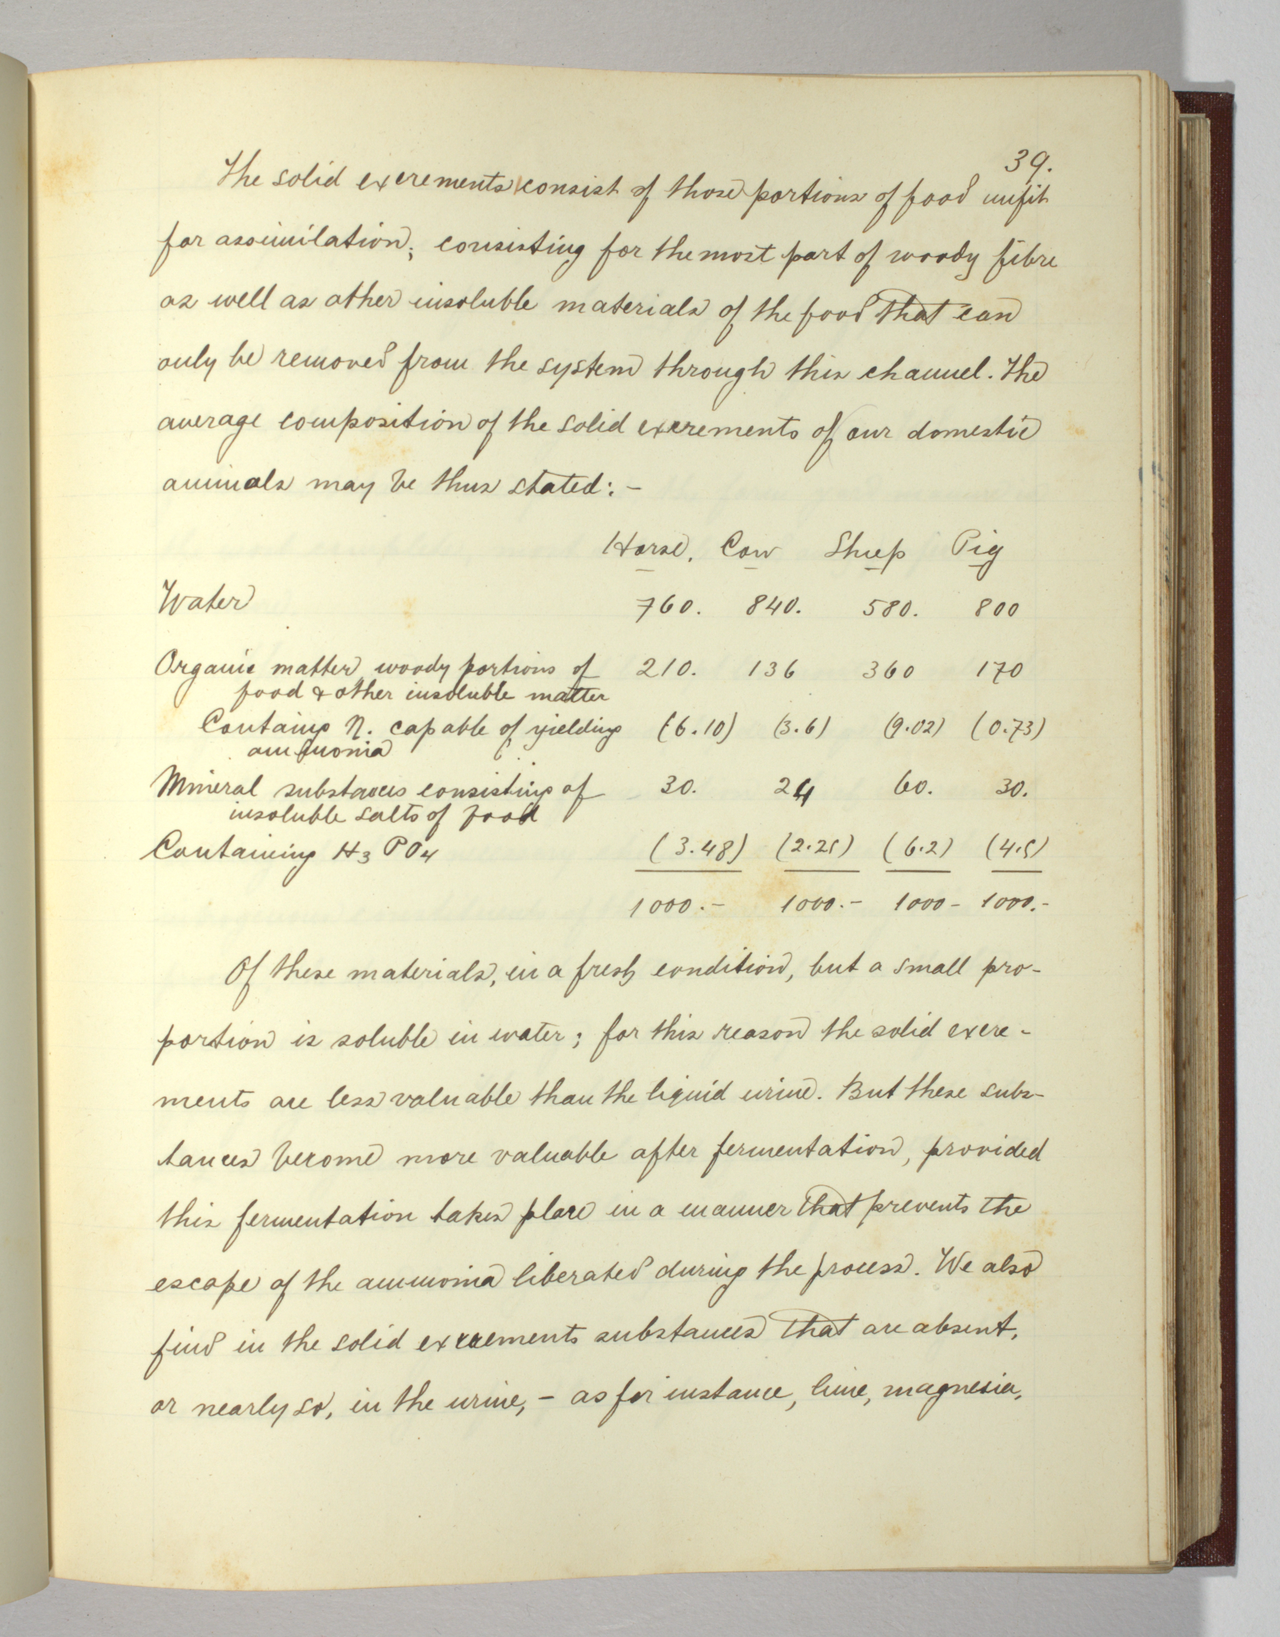 39.
The solid excrements consist of those portions of food unfit
for assimilation; consisting for the most part of woody fibre
as well as other insoluble materials of the food that can
only be removed from the system through this channel. The
average composition of the solid excrements of our domestic
animals may be thus stated: -
Horse. Cow Sheep Pig
Water 760. 840. 580. 800
Organic matter woody portions of 210. 136 360 170
food & other insoluble matter
Containg N. capable of yielding (6.10) (3.6) (9.02) (0.73)
ammonia
Mineral substances consisting of 30. 24 60. 30.
insoluble salts of food
Containing H3 PO4 (3.48) (2.25) (6.2) (4.5)
1000.- 1000.- 1000- 1000.-
Of these materials, in a fresh condition, but a small pro-
portion is soluble in water; for this reason the solid excre-
ments are less valuable than the liquid urine. But these subs-
tances become more valuable after fermentation, provided
this fermentation takes place in a manner that prevents the
escape of the ammonia liberated during the process. We also
find in the solid excrements substances that are absent,
or nearly so, in the urine, - as for instance, lime, magnesia,